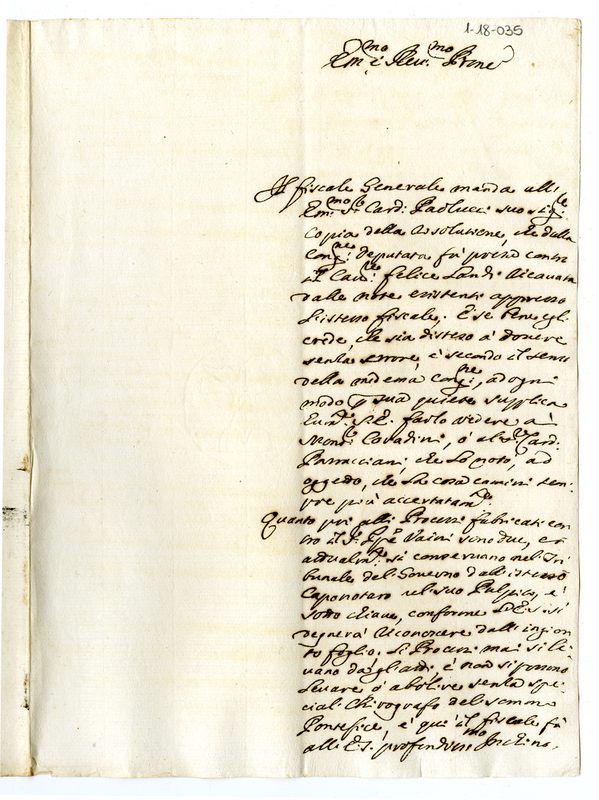 1-18-035
Em.mo e Reu.mo Prone
Il fiscale Generale manda all'
Em.mo S.r Card: Paolucci suo Sig.re
Copia della Resolutione, che dalla
Cong.ne deputata fù presa contro
il Cau.re felice Landi Ricauata
dalle note existenti appresso
l'istesso fiscale, E se bene egli
crede, che sia disteso à douere
senza errore, e secondo il senso
della med.ema Cong.ne, ad ogni
modo p sua quiete supplica
S.E. farlo uedere à
Mons.r Corradini, ò al S.r Card:
Parracciani, che lo notò, ad
oggetto, che la cosa camini sem-
pre più accertatam.te
Quanto poi alli Processi fabricati con-
tro il S.r Vaini sono due, et
attualm.te si conseruano nel Tri-
bunale del Gouerno dall'istesso
Caponotaro nel suo Pulpito, e
sotto chiaue, conforme l'E.S. si
degnerà riconoscere dall'ingion-
to foglio. Li Processi mai si le-
uano dagl'atti, e non si possono
leuare ò abolire senza spe-
cial Chirografo del sommo
Pontefice, e quì il fiscale fà
all'E.S. profondiss.mo Inchino,